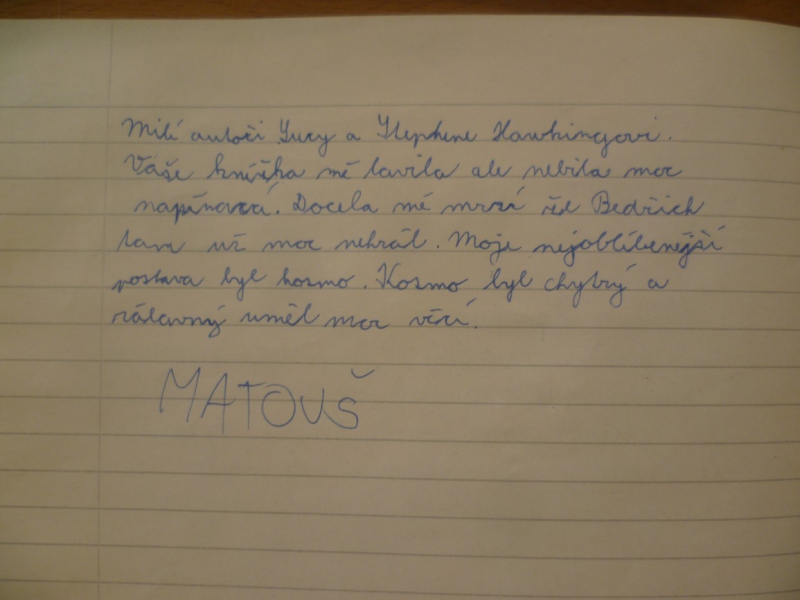 Milí autoři Lucy a Stephene Hawkingovi.
Vaše knížka mě bavila ale nebila moc
napínavá. Docela mě mrzí že Bedřich
tam už moc nehrál. Moje nejoblíbenější
postava byl kosmo. Kosmo byl chytrý a
zábavný uměl moc věcí.
MATOUŠ